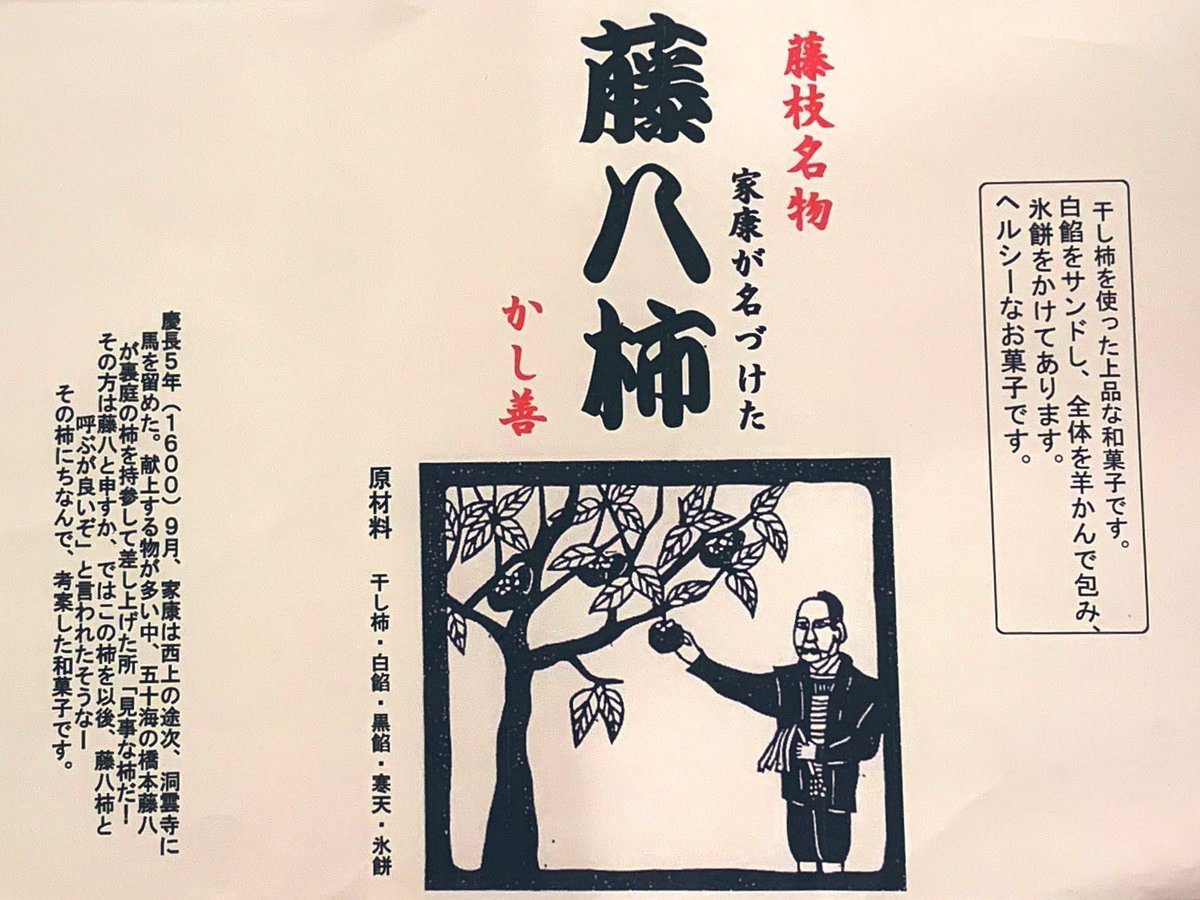 干し柿を使った上品な和菓子です。
白餡をサンドし、全体を羊かんで包み、
氷餅をかけてあります。
ヘルシーなお菓子です。
藤枝名物
家康が名づけた
藤八柿
かし善
原材料 干し柿・白餡・黒餡・寒天・氷餅
慶長5年(1600)9月、家康は西上の途次、洞雲寺に
馬を留めた。献上する物が多い中、五十海の橋本藤八
が裏庭の柿を持参して差し上げた所「見事な柿だー
その方は藤八と申すか、ではこの柿を以後、藤八柿と
呼ぶが良いぞ」と言われたそうなー
その柿にちなんで、考案した和菓子です。